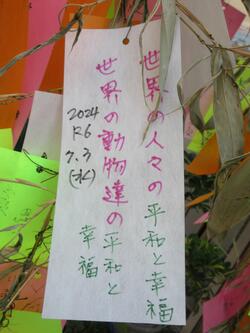 世界の人々の平和と幸福
世界の動物達の平和と
幸福
2024
R6
7.3
(水)